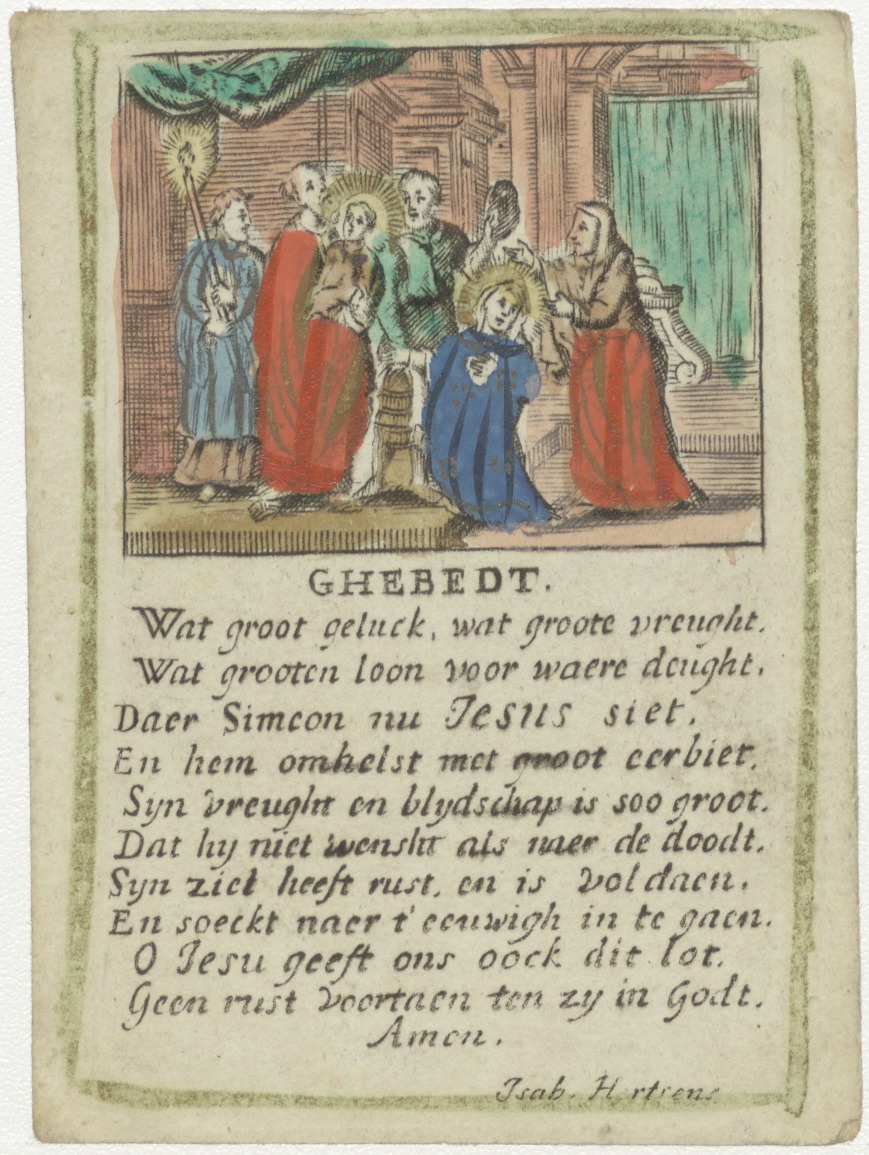 GHEBEDT.
Wat groot geluck, wat groote vreught.
Wat grooten loon voor waere deught.
Daer Simeon nu Jesus siet.
En hem omhelst met groot eerbiet.
Syn vreught en blydschap is soo groot.
Dat hy niet wensht als naer de doodt.
Syn ziel heeft rust, en is voldaen.
En soeckt naer t'eeuwigh in te gaen.
O Jesu geeft ons oock dit lot.
Geen rust voortaen ten zy in Godt.
Amen.
Isab.